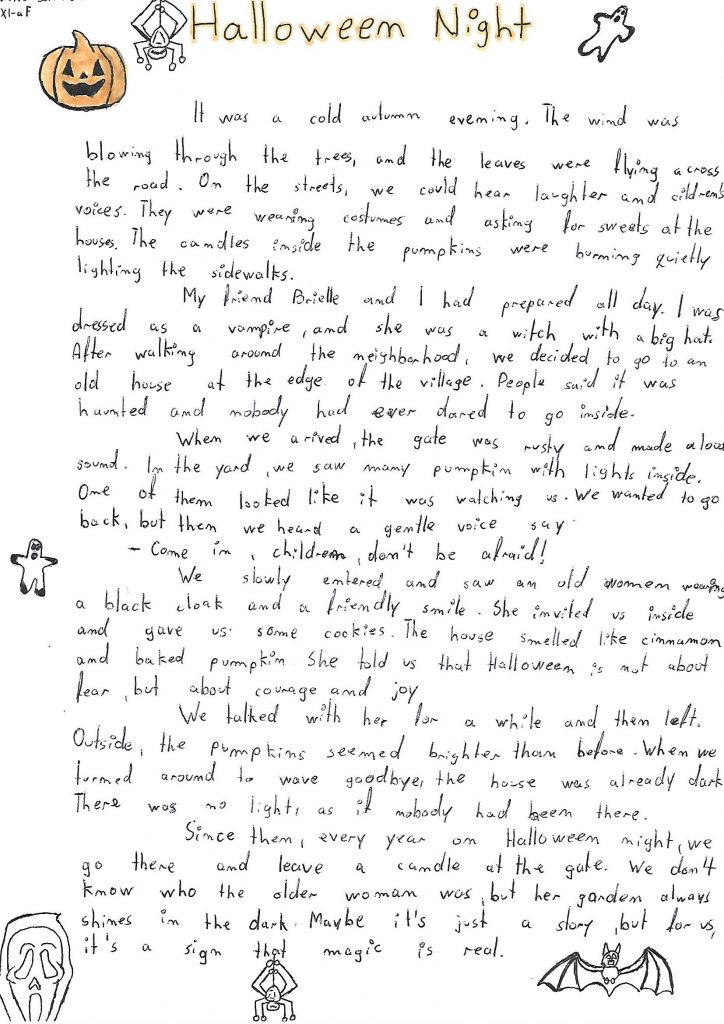 XI-a F
Halloween Night
It was a cold autumn evening. The wind was
blowing through the trees, and the leaves were flying across
the road. On the streets, we could hear laughter and cildren's
voices. They were wearing costumes and asking for sweets at the
houses. The candles inside the pumpkins were burning quietly
lighting the sidewalks.
My friend Brielle and I had prepared all day. I was
dressed as a vampire, and she was a witch with a big hat.
After walking around the neighborhood, we decided to go to an
old house at the edge of the village. People said it was
haunted and nobody had ever dared to go inside.
When we arived, the gate was rusty and made a loud
sound. In the yard, we saw many pumpkin with lights inside.
One of them looked like it was watching us. We wanted to go
back, but then we heard a gentle voice say
- Come in, children, don't be afraid!
We slowly entered and saw an old women wearing
a black cloak and a friendly smile. She invited us inside
and gave us some cookies. The house smelled like cinnamon
and baked pumpkin. She told us that Halloween is not about
fear, but about courage and joy
We talked with her for a while and then left.
Outside, the pumpkins seemed brighter than before. When we
turned around to wave goodbye, the house was already dark
There was no light, as if nobody had been there.
Since then, every year on Halloween night, we
go there and leave a candle at the gate. We don't
know who the older woman was, but her garden always
shines in the dark. Maybe it's just a story, but for us,
it's a sign that magic is real.